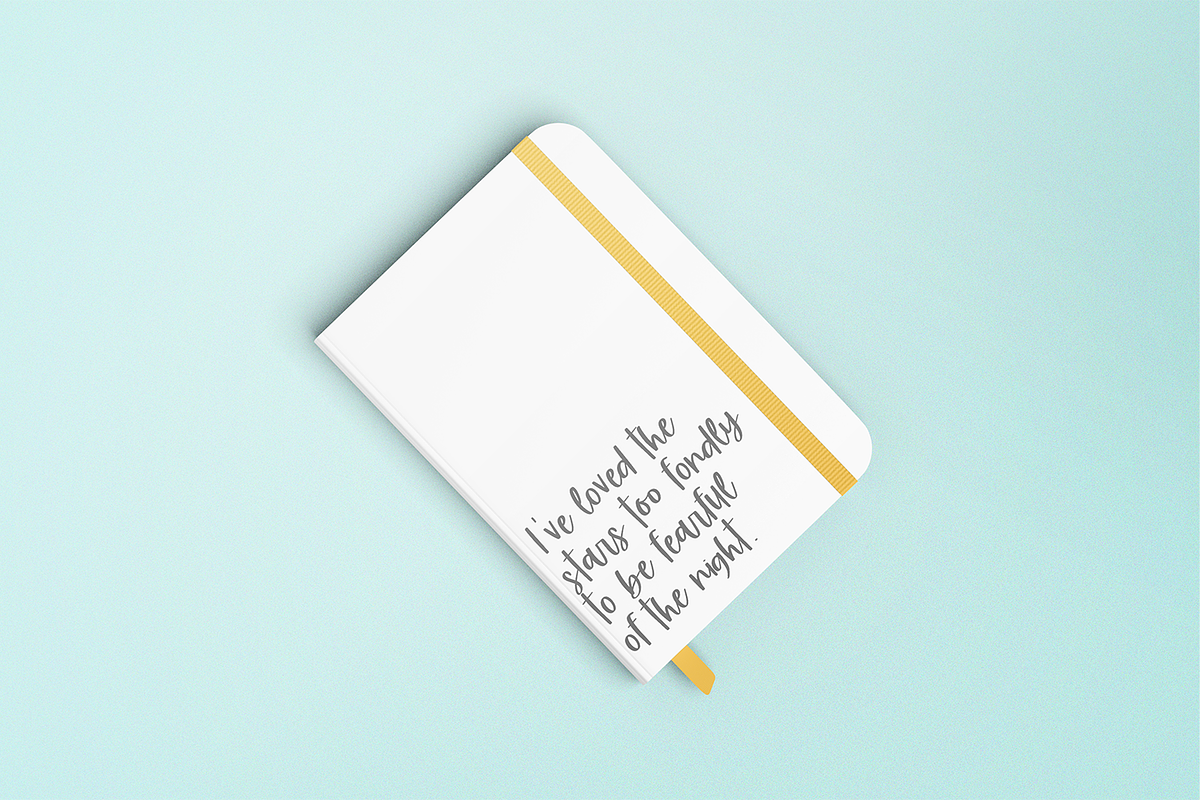 I've loved the
stars too fondly
to be fearful
of the night.